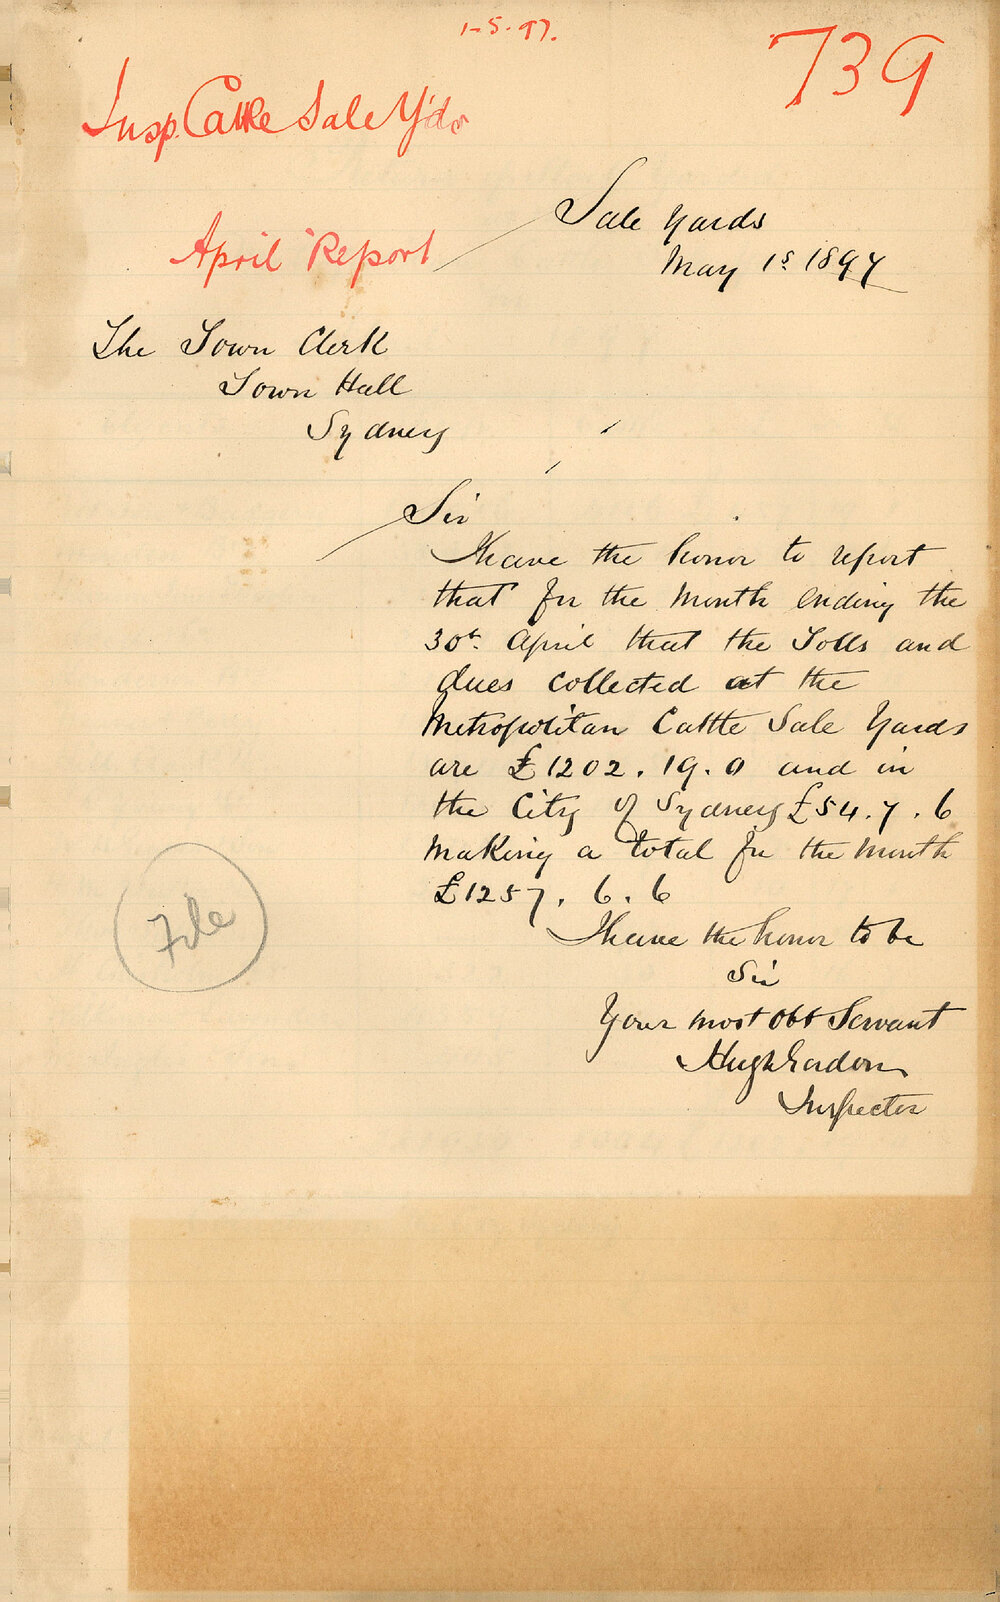 1-5.97.
739
Insp. Cattle Sale Yds
April Report
Sale Yards
May 1s 1897
The Town Clerk
Town Hall
Sydney
Sir
I have the honor to report
that for the Month ending the
30th April that the Tolls and
dues collected at the
Metropolitan Cattle Sale Yards
are £1202.19.0 and in
the City of Sydney £54.7.6
Making a total for the Month
£1257.6.6
I have the honor to be
Sir
Your most obt Servant
Hugh Gordon
Inspector
File